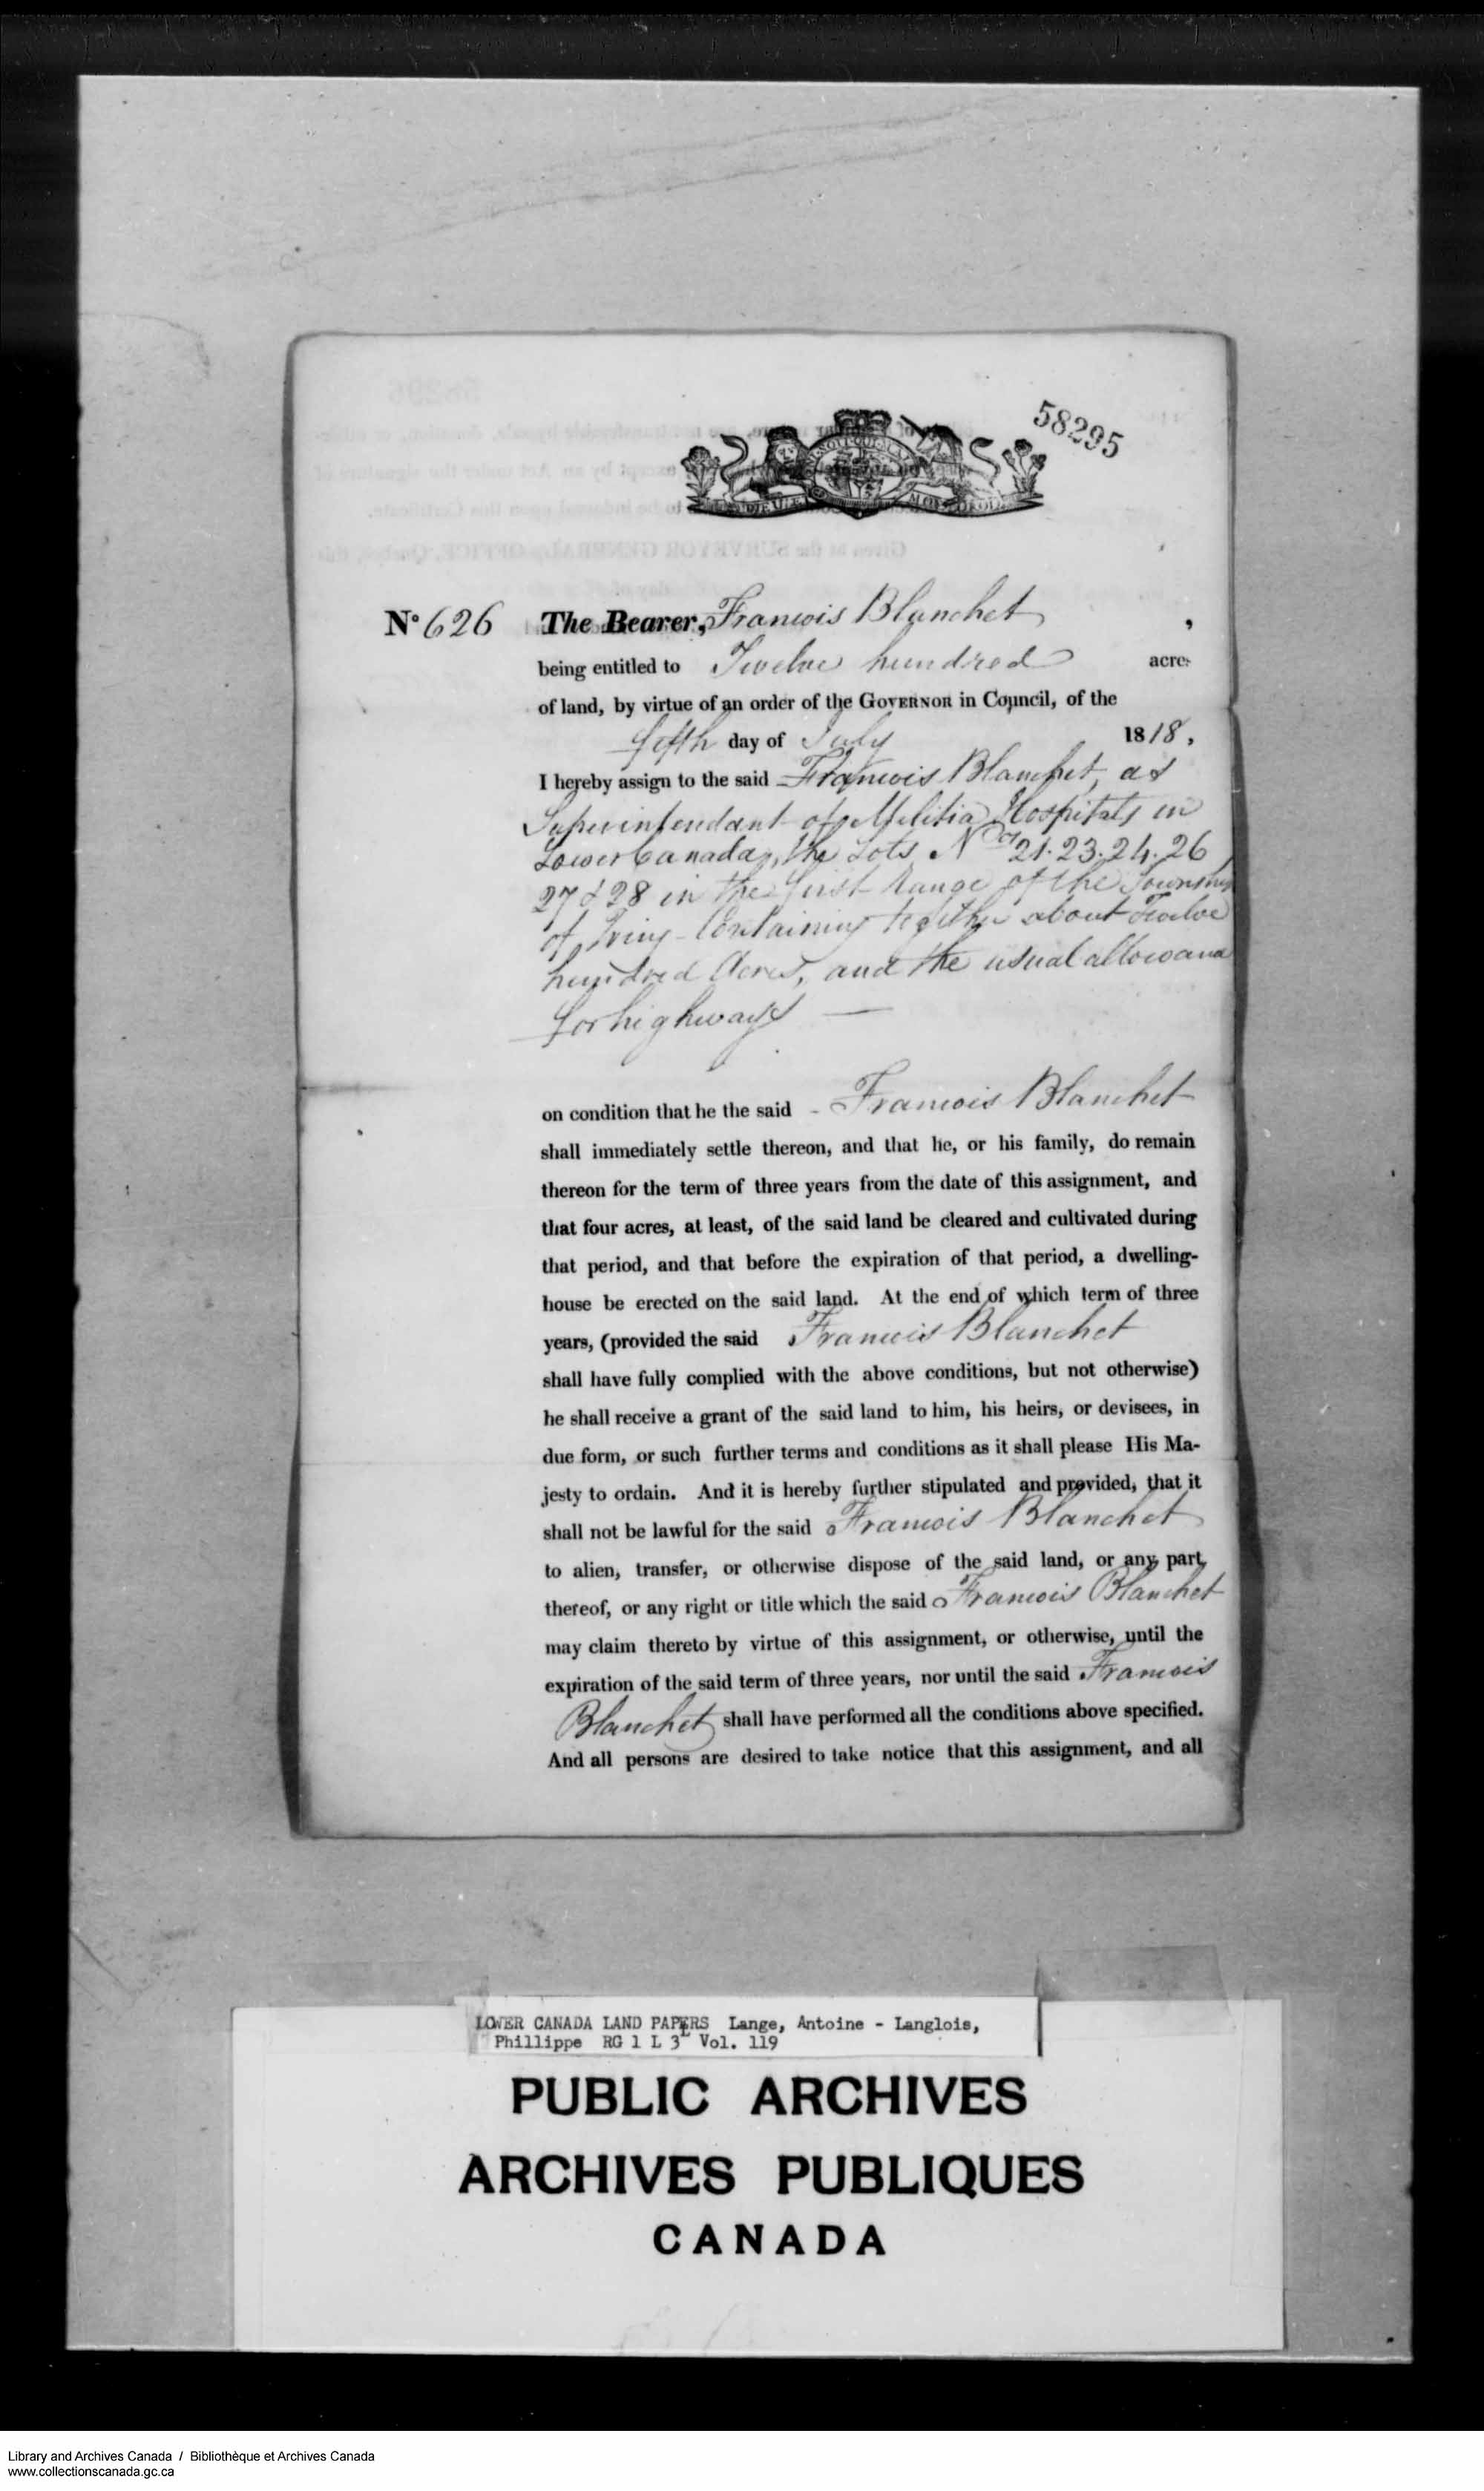 58295
HONI SOIT QUI MAL Y PENSE
DIEU ET MON DROIT
No. 626 The Bearer, Francois Blanchet,
being entitled to Twelve hundred acres
of land, by virtue of an order of the GOVERNOR in Council, of the
fifth day of July 1818,
I hereby assign to the said Francois Blanchet, as
Superintendant of Militia Hospitals in
Lower Canada, the Lots Nos 21. 23. 24. 26
27 & 28 in the first Range of the Township
of Tring Containing together about Twelve
hundred Acres, and the usual allowance
for highways —
on condition that he the said - Francois Blanchet
shall immediately settle thereon, and that he, or his family, do remain
thereon for the term of three years from the date of this assignment, and
that four acres, at least, of the said land be cleared and cultivated during
that period, and that before the expiration of that period, a dwelling-
house be erected on the said land. At the end of which term of three
years, (provided the said Francois Blanchet
shall have fully complied with the above conditions, but not otherwise)
he shall receive a grant of the said land to him, his heirs, or devisees, in
due form, or such further terms and conditions as it shall please His Ma-
jesty to ordain. And it is hereby further stipulated and provided, that it
shall not be lawful for the said Francois Blanchet
to alien, transfer, or otherwise dispose of the said land, or any part
thereof, or any right or title which the said Francois Blanchet
may claim thereto by virtue of this assignment, or otherwise, until the
expiration of the said term of three years, nor until the said Francois
Blanchet shall have performed all the conditions above specified.
And all persons are desired to take notice that this assignment, and all
LOWER CANADA LAND PAPERS Lange, Antoine - Langlois,
Phillippe RG 1 L 3L Vol. 119
PUBLIC ARCHIVES
ARCHIVES PUBLIQUES
CANADA
Library and Archives Canada / Bibliothèque et Archives Canada
www.collectionscanada.gc.ca